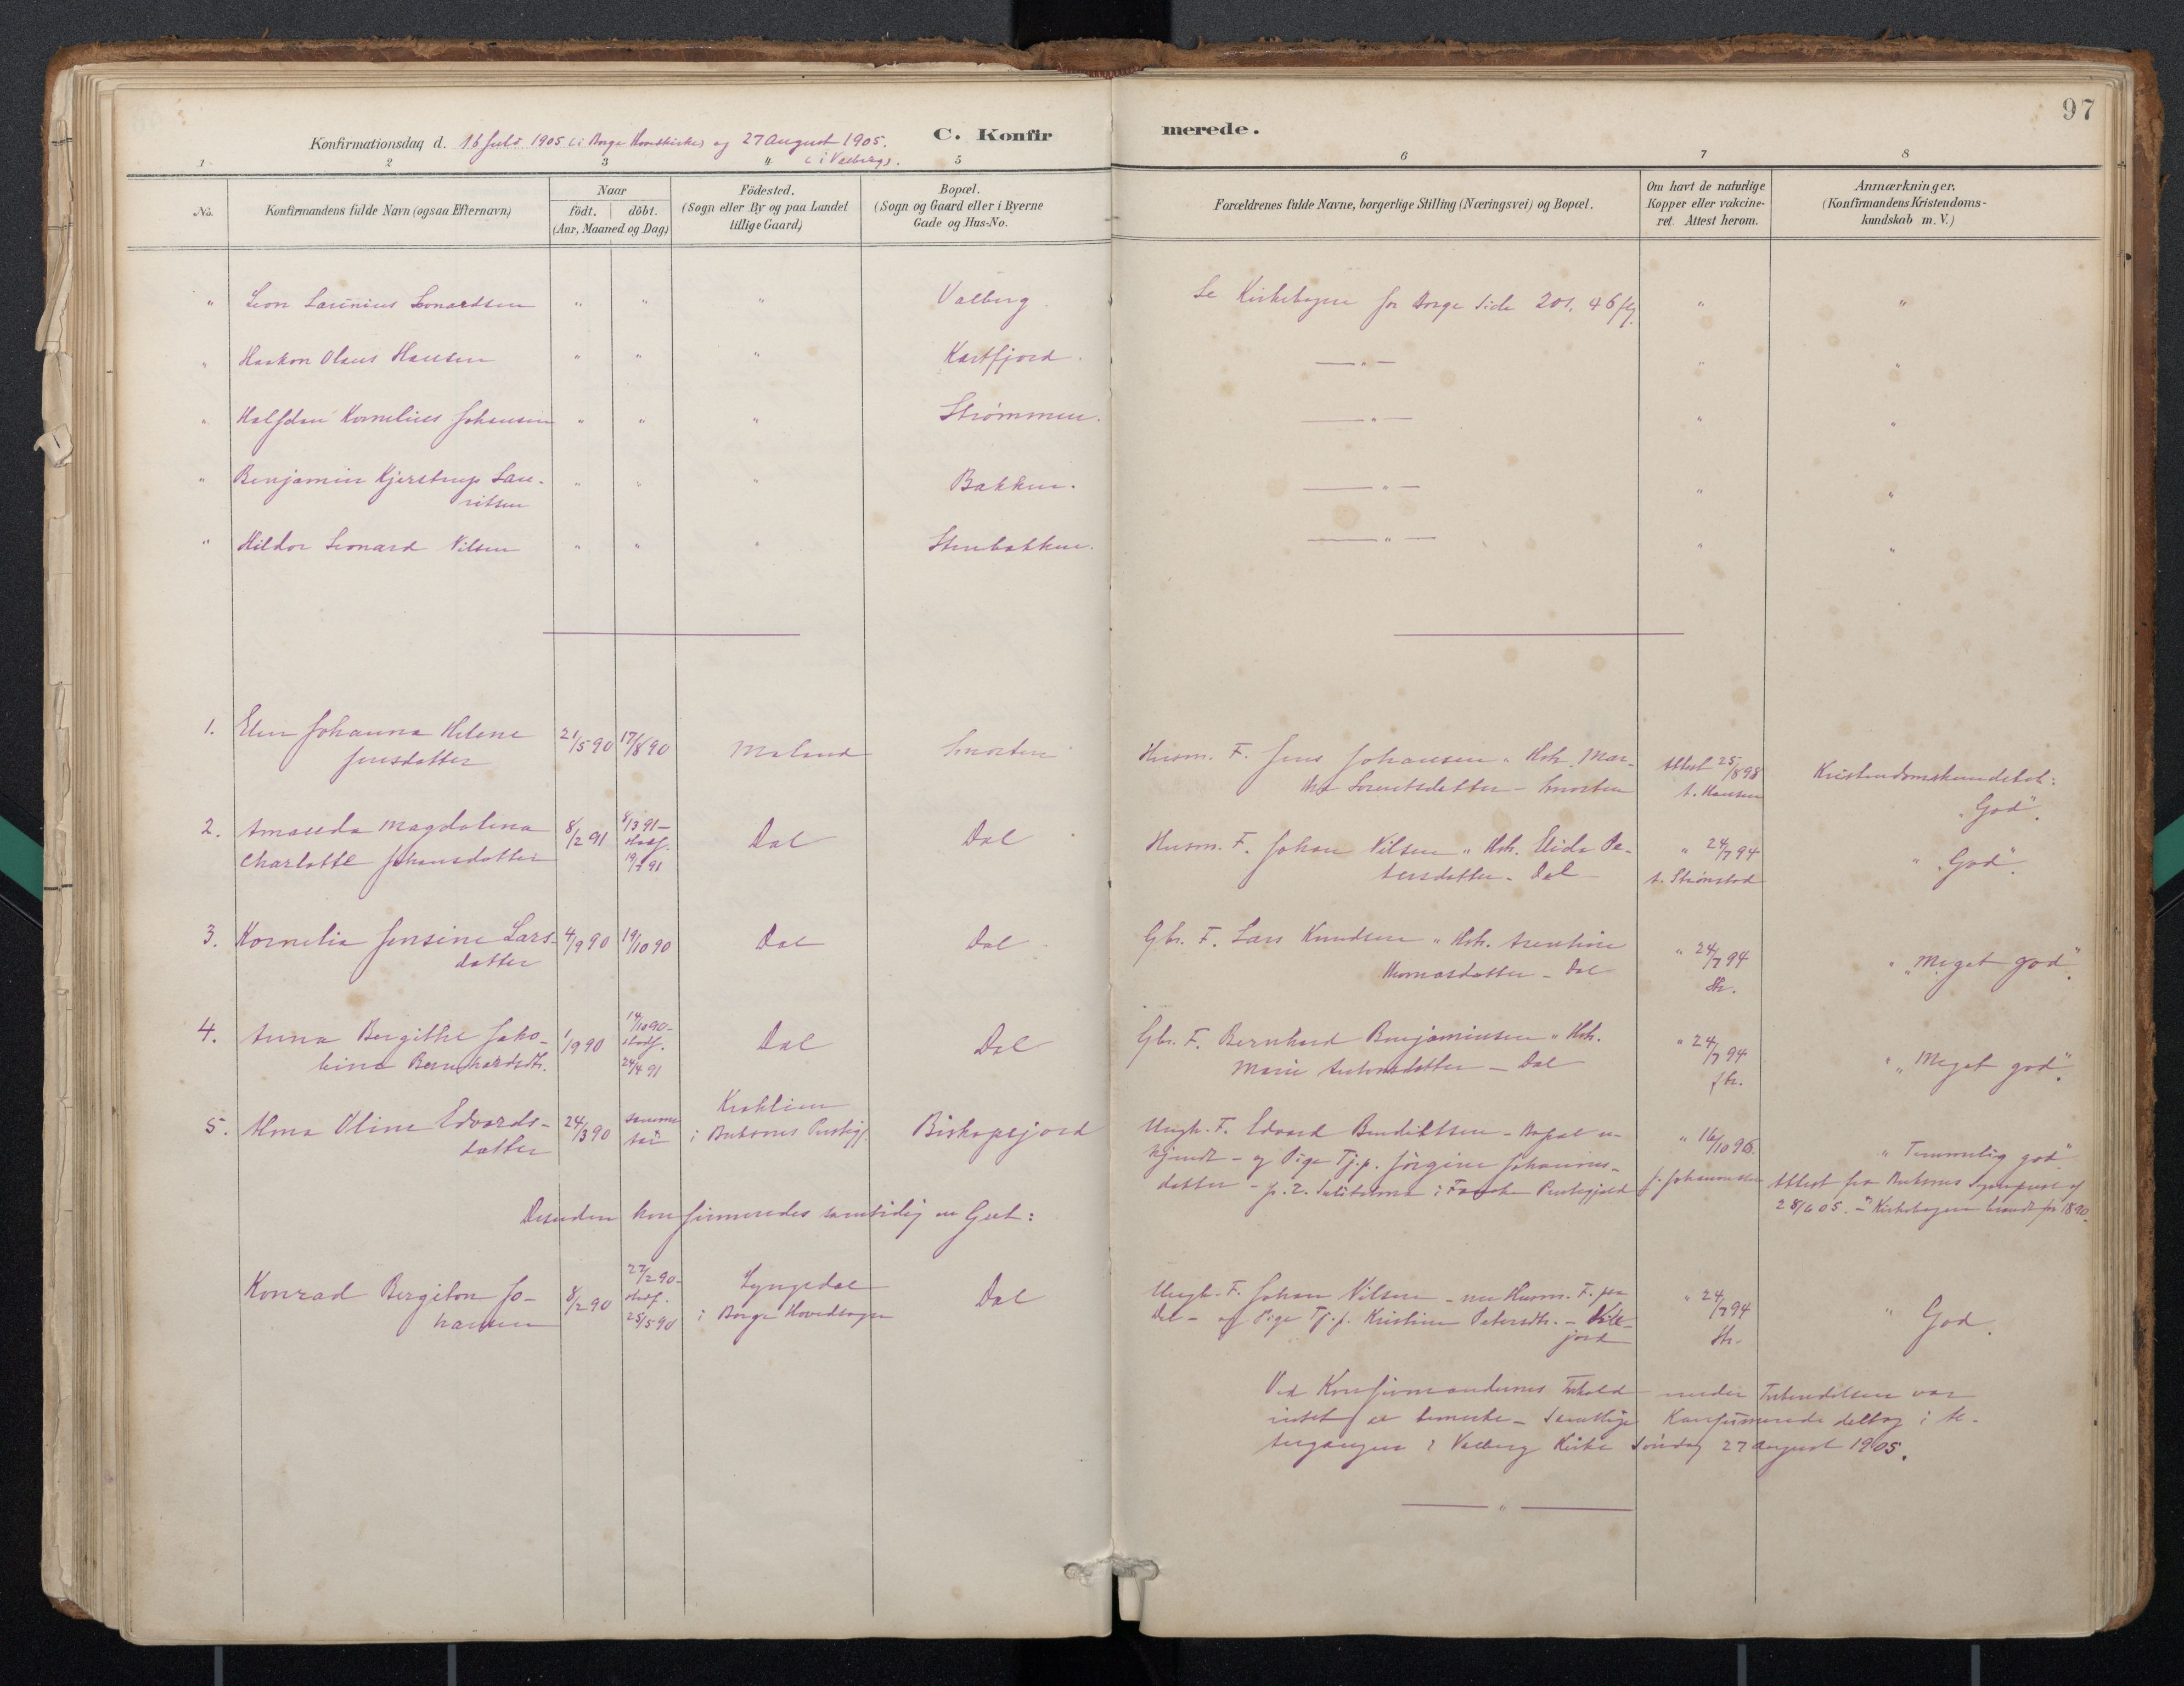 97
C. Konfirmerede.
Konfirmationsdag d. 16 Juli 1905 (i Borge Hovedkirke) og 27 august 1905.
(i Valberg).
1 2 3 4 5 6 7 8
No.
Konfirmandens fulde Navn (ogsaa Efternavn)
Naar
födt. döbt.
(Aar, Maaned og Dag)
Födested.
(Sogn eller By og paa Landet
tillige Gaard)
Bopæl.
(Sogn og Gaard eller i Byerne
Gade og Hus-No.
Forældrenes fulde Navne, borgerlige Stilling (Næringsvei) og Bopæl.
Om havt de naturlige
Kopper eller vakcine-
ret. Attest herom.
Anmærkninger.
(Konfirmandens Kristendoms-
kundskab m. V.)
" Leon Leonardsen " " " Valberg Se Kirkebogen for Borge Side 201, 46 flg. " "
" Haakon Olaus Hansen " " " — " — " "
" Halfdan Kornelius Johansen " " " Strømmen. — " — " "
" Benjamin Kjerstrup Lau-
ritsen " " " Bakken. — " — " "
" Hildor Leonard Nilsen " " " Stenbakken. — " — " "
1. Elen Johanna Helene
Jensdatter 21/5 90 17/8 90 Malnes
Husm. F. Jens Johansen " Hstr. Mar-
tha Lorentsdatter Attest 25/8 98
Hansen
Kristendomskundskab:
"God".
2. Amanda Magdalena
Charlotte Johansdatter 8/2 91 8/3 91 –
Stadf.
19/7 91 Dal Dal
Husm. F. Johan Nilsen " Hstr. Elida Pe-
tersdatter – Dal " 24/7 94
" "God".
3. Kornelia Jensine Lars-
datter 4/9 90 19/10 90 Dal Dal
Gbr. F. Lars Knudsen " Hstr.
Thomasdatter – Dal " 24/7 94
Str.
" "Meget god".
4. Anna Bergithe Jako-
bine Bernhardsdtr. 1/9 90 14/10 90 –
Stadf.
24/4 91 Dal Dal
Gbr. F. Bernhard Benjaminsen " Hstr.
Marie Antonsdatter – Dal " 24/7 94
Str.
" "Meget god".
5. Alma Oline Edvards-
datter 24/3 90 samme
aar
i Buksnes Prestegj. Biskopsjord
Ungk. F. Edvard Bendiktsen – Bopæl u-
kjendt – og Pige Tj. p. Jørgine Johannes-
datter – " 16/10 96.
J. Johannessen
" "Temmelig god".
Attest fra Buksnes Sogneprest af
28/6 05.
Desuden konfirmeredes samtidig en Gut:
Konrad Bergiton Jo-
hansen 8/2 90 27/2 90 –
stadf.
25/5 90 Lyngedal
i Borge Hovedsogn Dal
Ungk. F. Johan Nilsen – nu Husm. F. paa
Dal – og Pige Tj. p. Kristine Petersdtr. –
" 24/7 94
Str.
" God.
Ved Konfirmandernes Forhold under Forberedelsen var
intet at bemerke – Samtlige Konfirmerede deltog i Al-
tergangen i Valberg Kirke Søndag 27 august 1905.
— " —